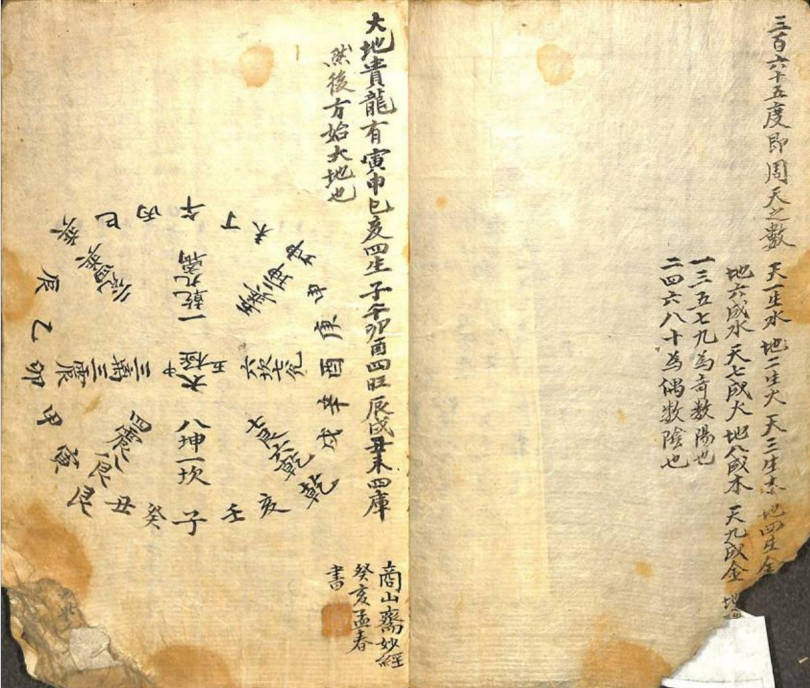 三百六十五度即周天之數
天一生水 地二生火 天三生木 地四生金
地六成水 天七成火 地八成木 天九成金 地
一三五七九為奇數陽也
二四六八十為偶數陰也
大地貴龍有寅申巳亥四生子午卯酉四旺辰戌丑未四庫
然後方始大地也
午
丁
未
坤
申
庚
酉
辛
戌
乾
亥
壬
子
癸
丑
艮
寅
甲
卯
乙
辰
巽
巳
丙
一乾九离
五巽二坤
六坎七兌
七艮六乾
八坤一坎
四震八艮
三离三震
二兌四巽
太極
中五
商山齋妙經
癸亥孟春
書